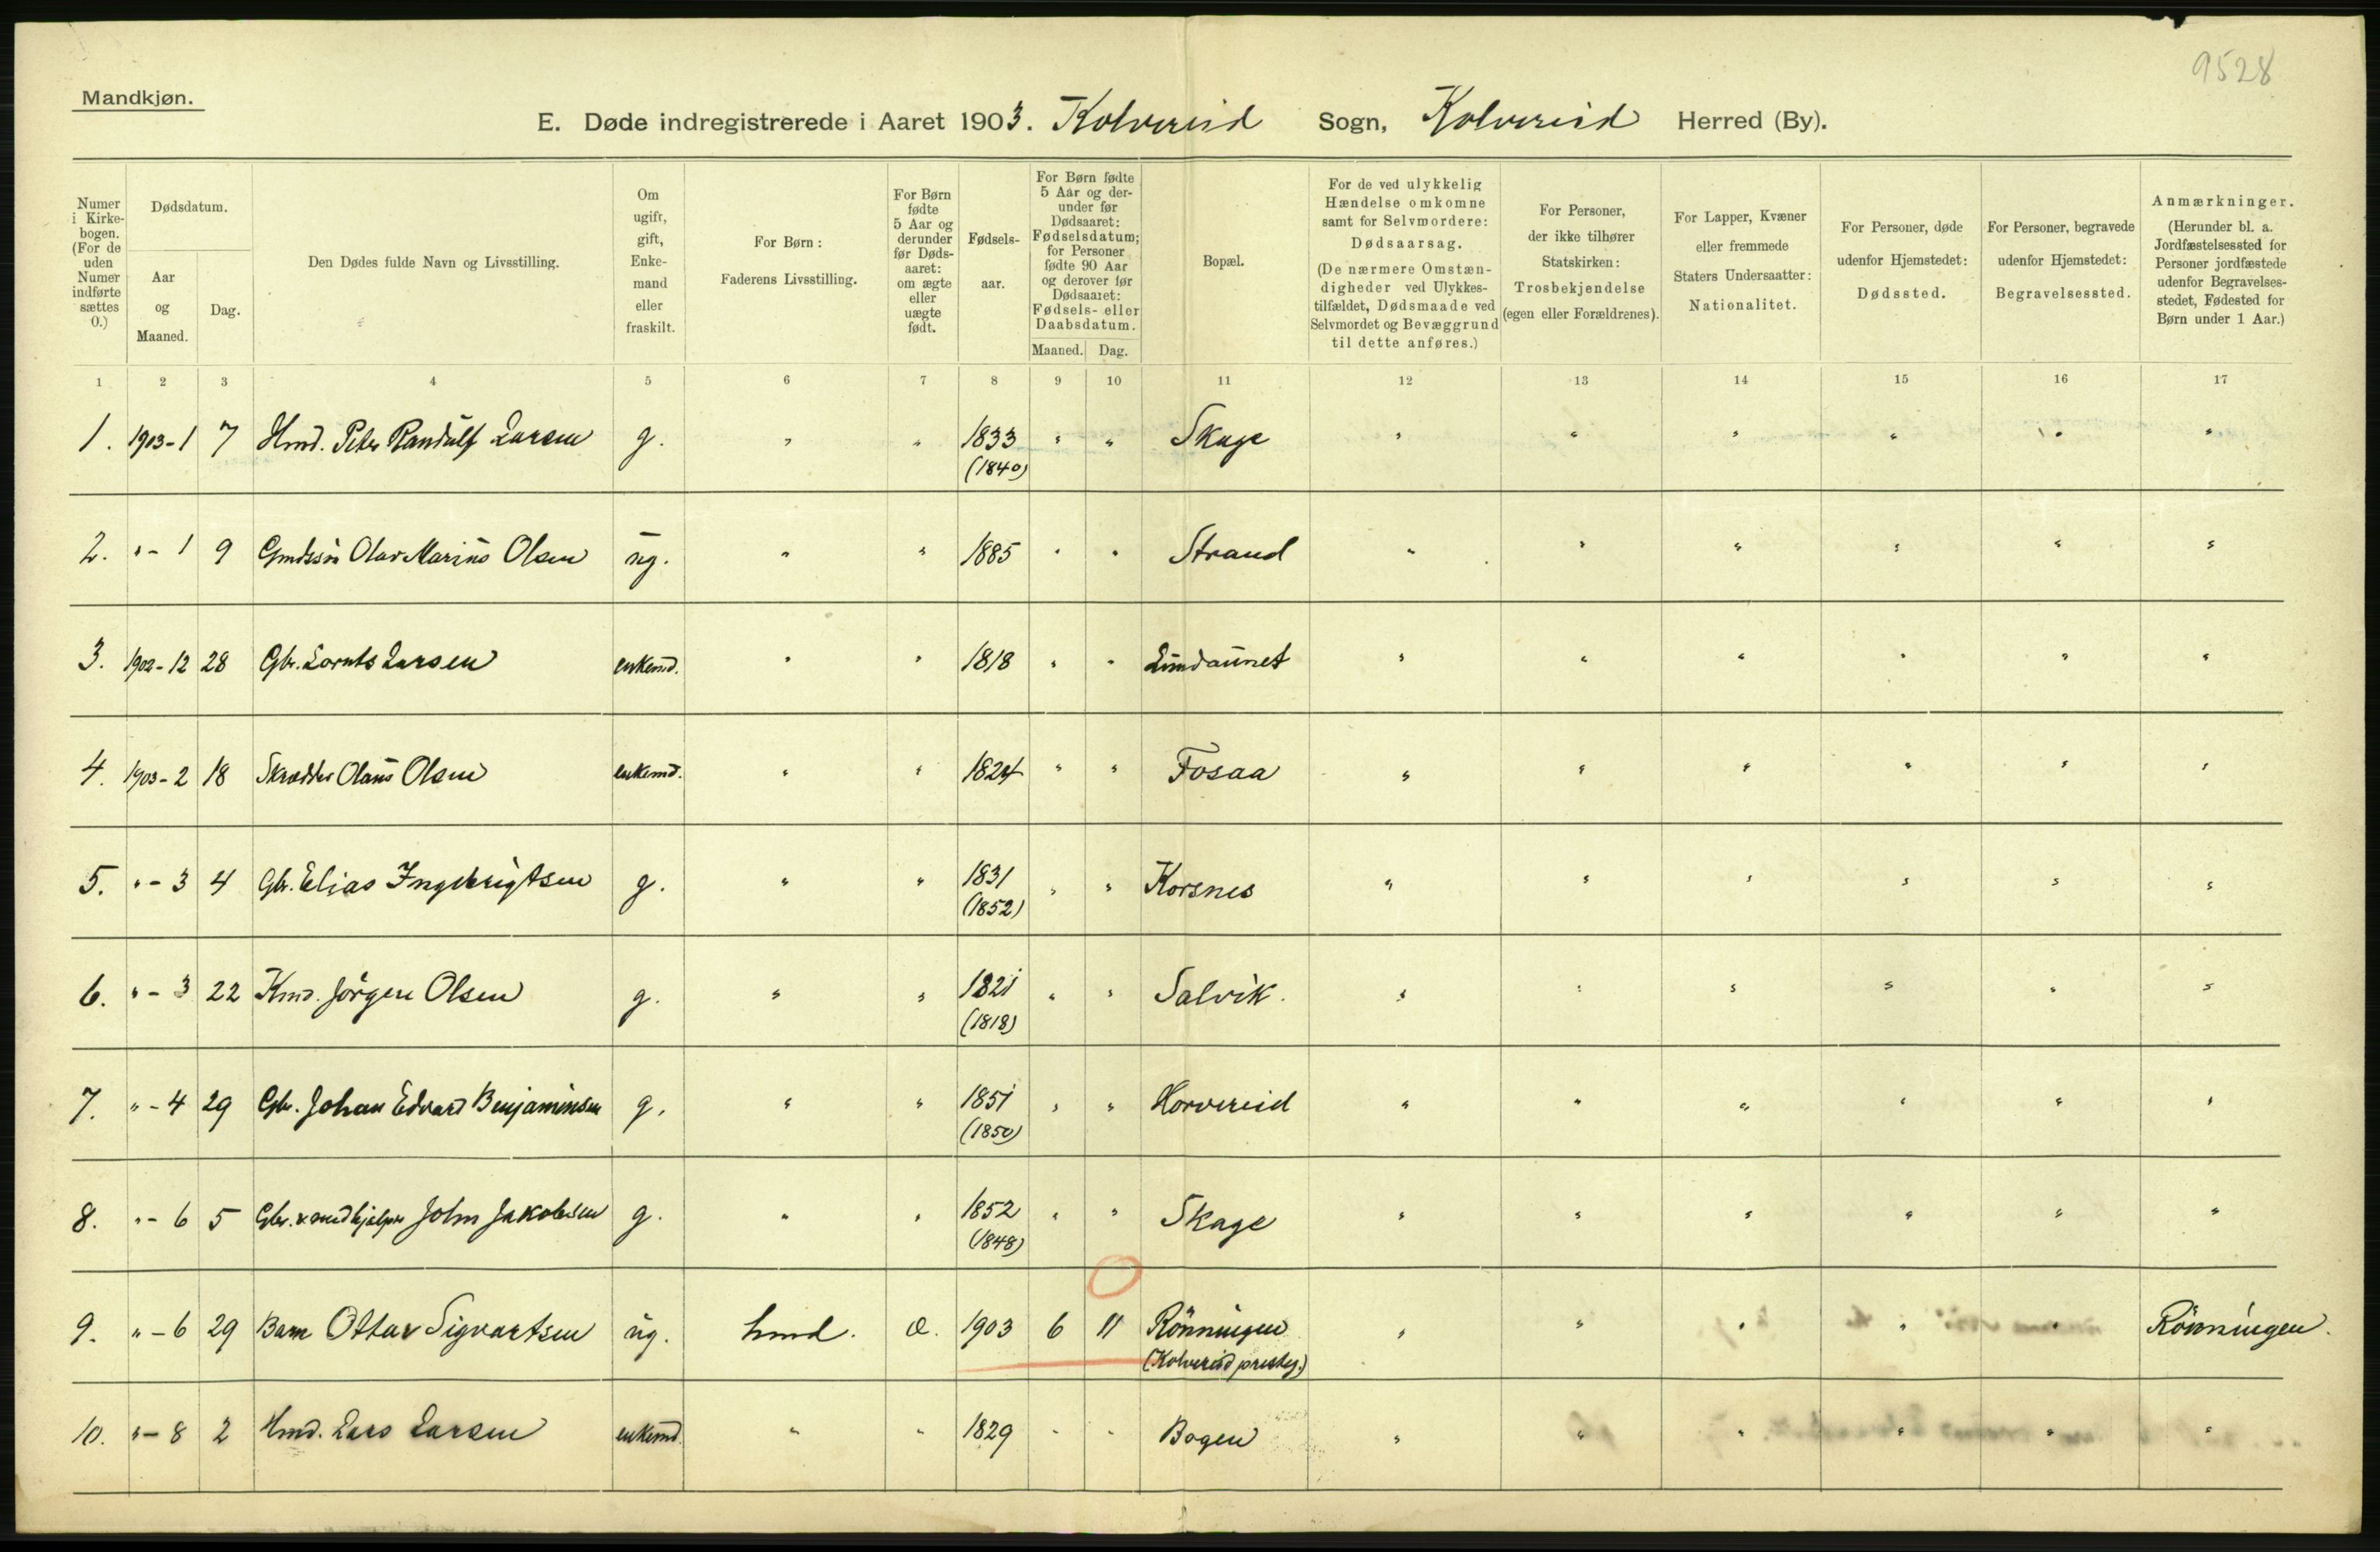 9528
Mandkjøn.
E. Døde indregistrerede i Aaret 1903. Kolvereid Sogn, Kolvereid Herred (By).
Numer i Kirke-bogen. (For de uden Numer indførte sættes 0.)
Dødsdatum.
Aar og Maaned.
Dag.
Den Dødes fulde Navn og Livsstilling.
Om ugift, gift, Enke-mand eller fraskilt.
For Børn: Faderens Livsstilling.
For Børn fødte 5 Aar og derunder før Døds-aaret: om ægte eller uægte født.
Fødsels-aar.
For Børn fødte 5 Aar og der-under før Dødsaaret: Fødselsdatum; for Personer fødte 90 Aar og derover før Dødsaaret: Fødsels- eller Daabsdatum.
Maaned. Dag.
Bopæl.
For de ved ulykkelig Hændelse omkomne samt for Selvmordere: Dødsaarsag. (De nærmere Omstæn-digheder ved Ulykkes-tilfældet, Dødsmaade ved Selvmordet og Bevæggrund til dette anføres.)
For Personer, der ikke tilhører Statskirken: Trosbekjendelse (egen eller Forældrenes).
For Lapper, Kvæner eller fremmede Staters Undersaatter: Nationalitet.
For Personer, døde udenfor Hjemstedet: Dødssted.
For Personer, begravede udenfor Hjemstedet: Begravelsessted.
Anmærkninger. (Herunder bl. a. Jordfæstelsessted for Personer jordfæstede udenfor Begravelses-stedet, Fødested for Børn under 1 Aar.)
1 2 3 4 5 6 7 8 9 10 11 12 13 14 15 16 17
1. 1903-1 7 Hmd. Peter Randulf Larsen g. " " 1833 " " Skage " " " " " "
(1840)
2. "-1 9 Gmdssön Olav Marius Olsen ug. " " 1885 " " Strand " " " " " "
3. 1902-12 28 Gbr. Lornts Larsen enkemd. " " 1818 " " Lindaunet " " " " " "
4. 1903-2 18 Skrædder Olaus Olsen enkemd. " " 1824 " " Fosaa " " " " " "
5. "-3 4 Gbr. Elias Ingebrigtsen g. " " 1831 " " Korsnes " " " " " "
(1852)
6. "-3 22 Kmd. Jörgen Olsen g. " " 1821 " " Salvik. " " " " " "
(1818)
7. "-4 29 Gbr. Johan Edvard Benjaminsen g. " " 1851 " " Horvereid " " " " " "
(1850)
8. "-6 5 Gbr. & medhjelper John Jakobsen g. " " 1852 " " Skage " " " " " "
(1848)
9. "-6 29 Barn Ottar Sigvartsen ug. hmd. æ. 1903 6 11 Rönningen " " " " " Rönningen.
(Kolvereid presteg.)
10. "-8 2 Hmd. Lars Larsen enkemd. " " 1829 " " Bogen " " " " " "